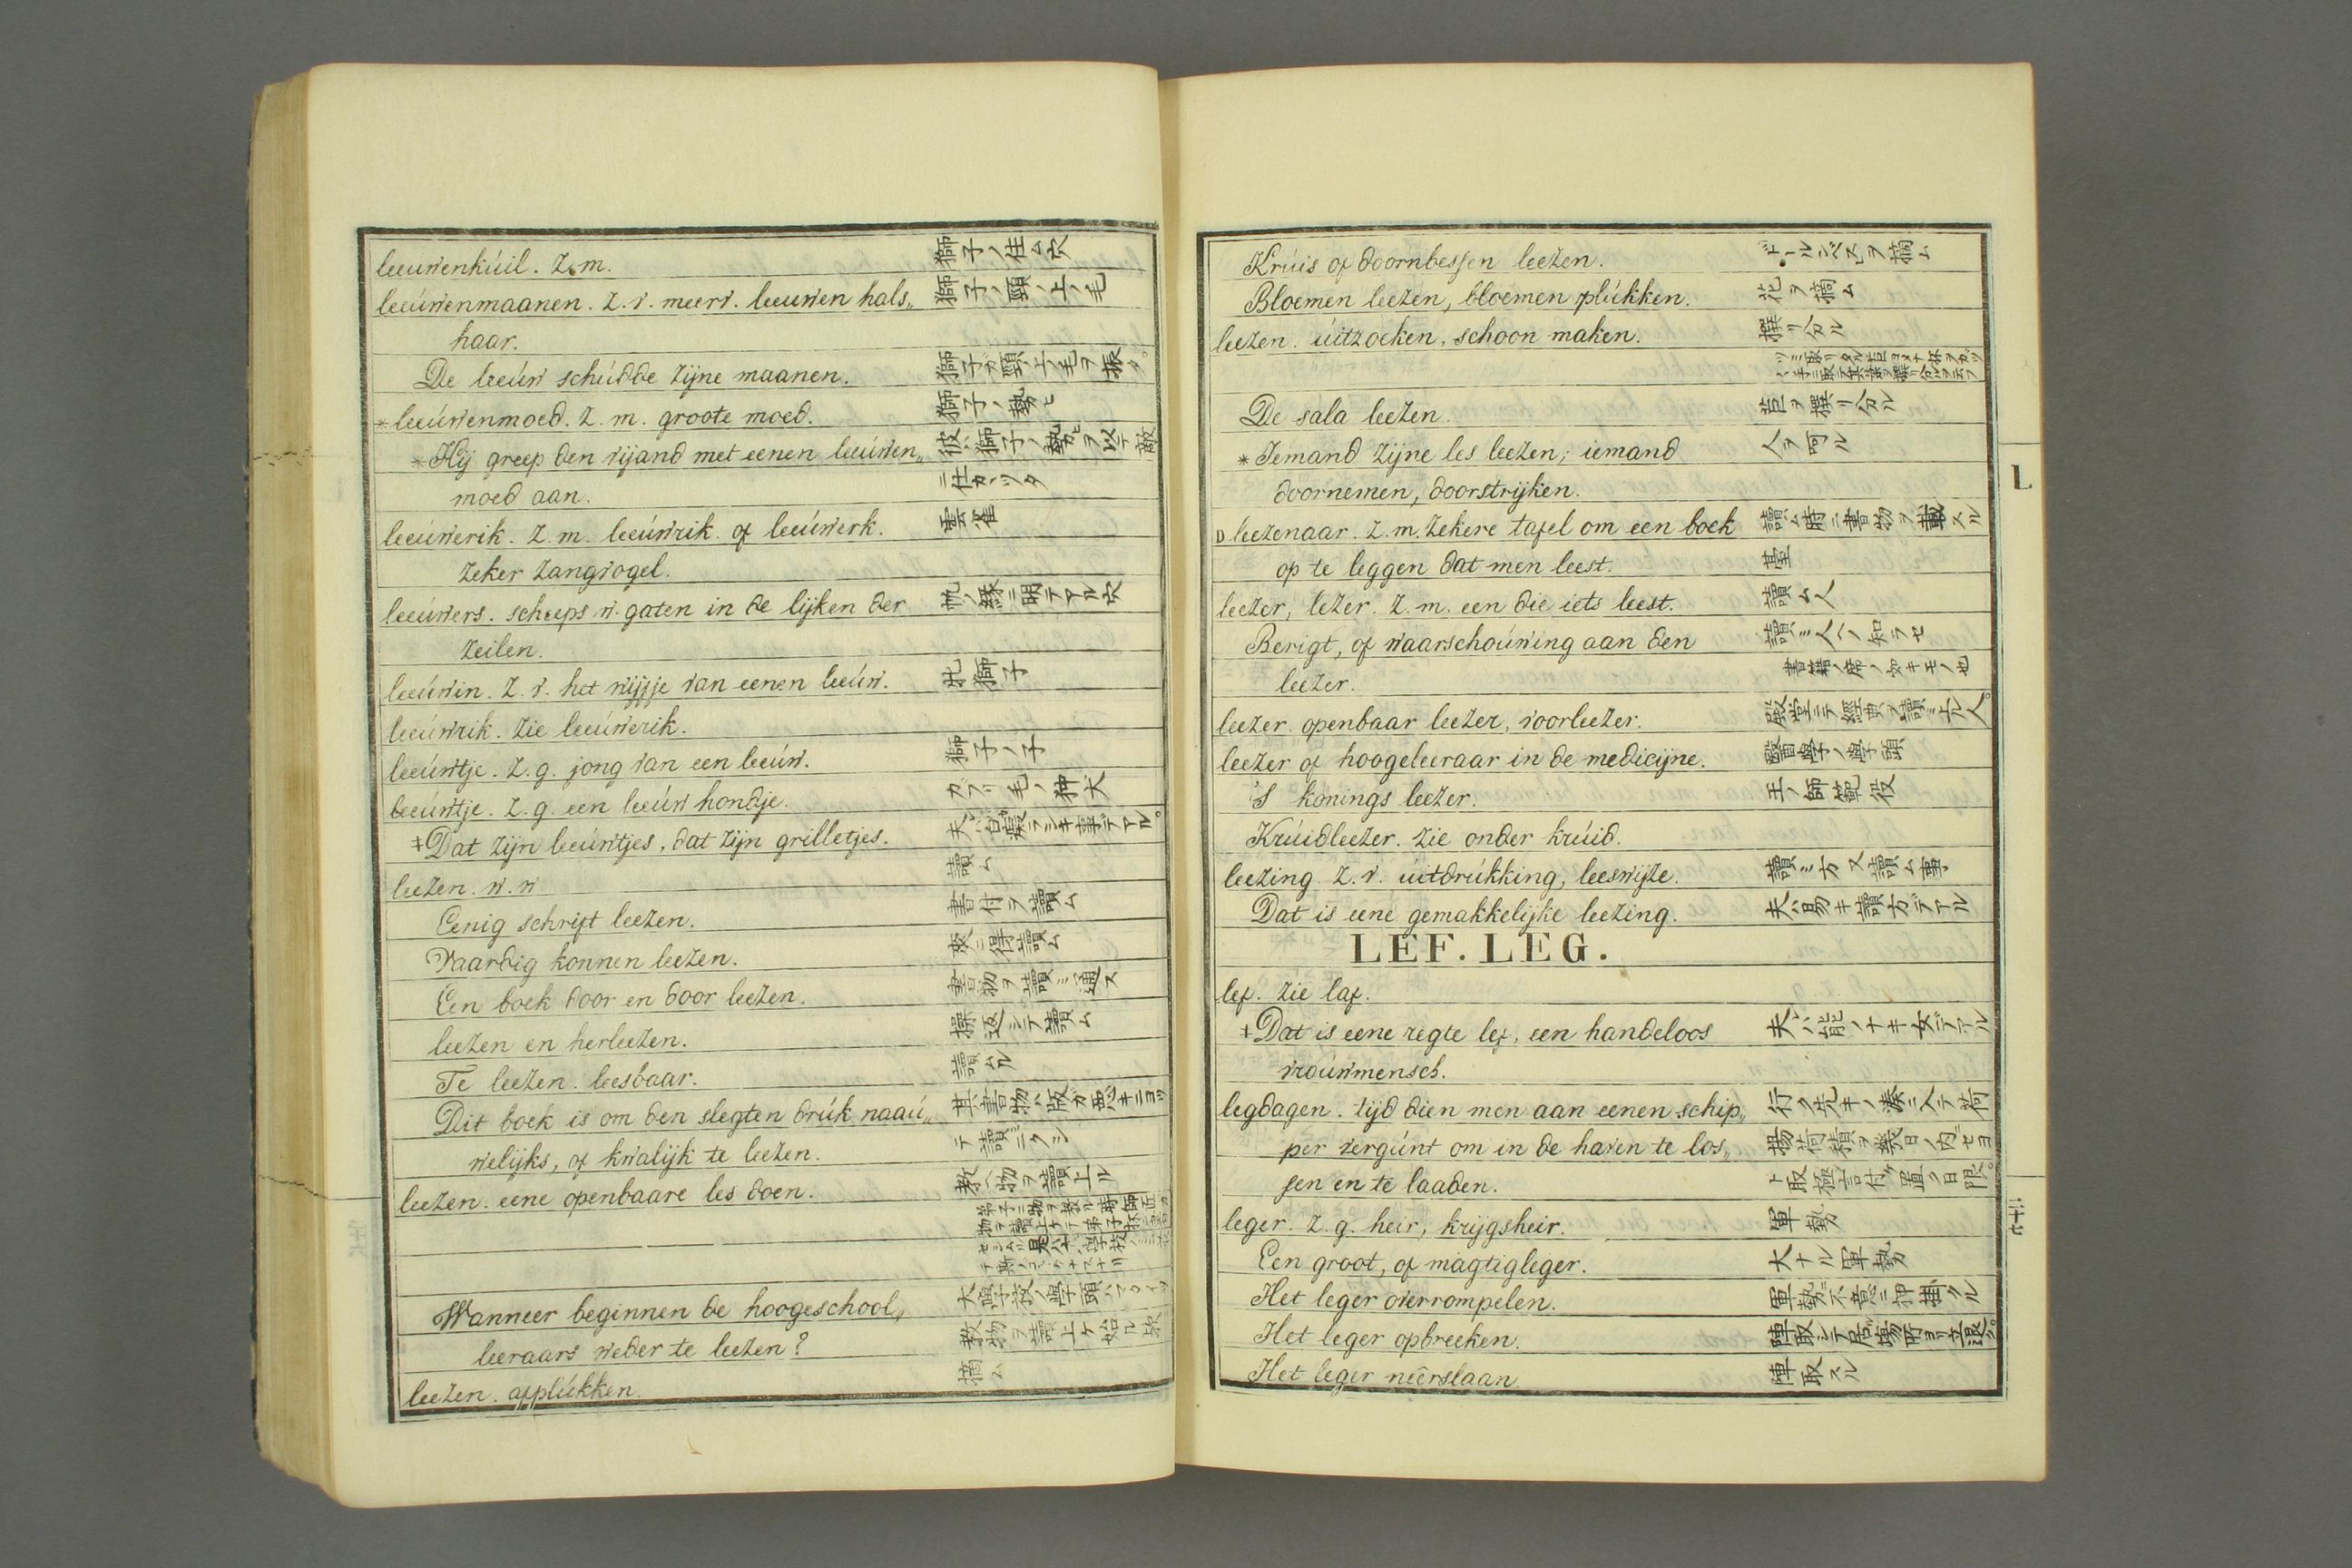 leeuwenkúil. Z. m. 獅子ノ住ム穴
leeúwenmaanen. Z. v. meerv. leeuwen hals„ 獅子ノ頸ノ上ノ毛
haar.
De leeúw schúdde zijne maanen. 獅子ガ頸ノ上ノ毛ヲ振タ。
*leeúwenmoed. Z. m. groote moed. 獅子ノ勢ヒ
*Hij greep den vijand met eenen leeúwen„ 彼ハ獅子ノ勢ヒヲ以テ敵
moed aan. ニ仕カヽツタ
leeúwerik. Z. m. leeúwrik of leeúwerk. 雲雀
Zeker Zangvogel.
leeúwers. scheeps w. gaten in de lijken der 帆ノ縁ニ明テアル穴
Zeilen.
leeúwin. Z. v. het wijfje van eenen leeúw. 牝獅子
leeúwrik. Zie leeúwerik.
leeúwtje. Z. g. jong van een leeúw. 獅子ノ子
leeúwtje. Z. g. een leeúw hondje.
‡Dat zijn leeúwtjes, dat zijn grilletjes.
leezen. w. w 讀ム
Eenig schrift leezen. 書付ヲ讀ム
Vaardig konnen leezen.
Een boek door en door leezen. 書物ヲ讀ミ通ス
leezen en herleezen. 操返シテ讀ム
Te leezen. leesbaar.
Dit boek is om den slegten drúk naaú„ 其書物ハ版ガ悪キニヨツ
welijks, of kwalijk te leezen. テ讀ミニクシ
leezen. eene openbaare les doen. 教ヘ物ヲ讀上ル
Wanneer beginnen de hoogeschool„
leeraars weder te leezen? 教物ヲ讀上ケ始ル歟
leezen. afplúkken. 摘ム
Krúis of doornbessen leezen.
Bloemen leezen, bloemen plúkken. 花ヲ摘ム
leezen. úitzoeken, schoon maken. 撰リ分ル
De sala leezen. 苣ヲ撰リ分ル
*Iemand zijne les leezen; iemand 人ヲ呵ル
doornemen, doorstrijken.
D leezenaar. Z. m. zekere tafel om een boek 讀ム時ニ書物ヲ載スル
op te leggen dat men leest. 䑓
leezer, lezer. Z. m. een die iets leest. 讀ム人
Berigt, of waarschoúwing aan den 讀ミ人ヘノ知ラセ
leezer.
leezer openbaar leezer, voorleezer. 殿堂ニテ經典ヲ讀ミ上ル人。
leezer of hoogeleeraar in de medicijne. 醫學ノ學頭
'S konings leezer. 王ノ師範役
Krúidleezer. zie onder krúid.
leezing. Z. v. úitdrúkking, leeswijze. 讀ミ方 又讀ム事
Dat is eene gemakkelijke leezing. 夫ハ易キ讀方デアル
LEF. LEG.
lef. zie laf.
‡Dat is eene regte lef, een handeloos 夫ハ能ノナキ女デアル
vroúwmensch.
legdagen. tijd dien men aan eenen schip„ 行ク先キノ湊ニ入テ荷
per vergúnt om in de haven te los„
sen en te laaden.
leger. Z. g. heir, krijgsheir. 軍勢
Een groot, of magtigleger. 大ナル軍勢
Het leger overrompelen. 軍勢ガ不意ニ押掛クル
Het leger opbreeken.
Het leger neêrslaan. 陣取スル
L